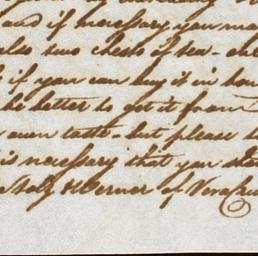 and if necessary you may
also two chests of tea - che
if you can buy it in
be better to get it from
own taste - but please
is necessary that you
& Werner of Vera